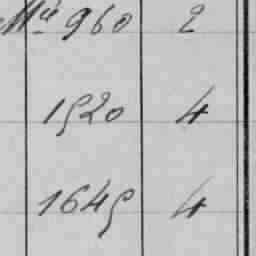 Mª 960 2
1520 4
1645 4